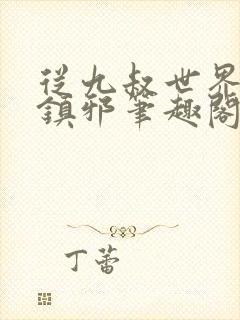 從九叔世界
鎮邪筆趣閣
丁蕾